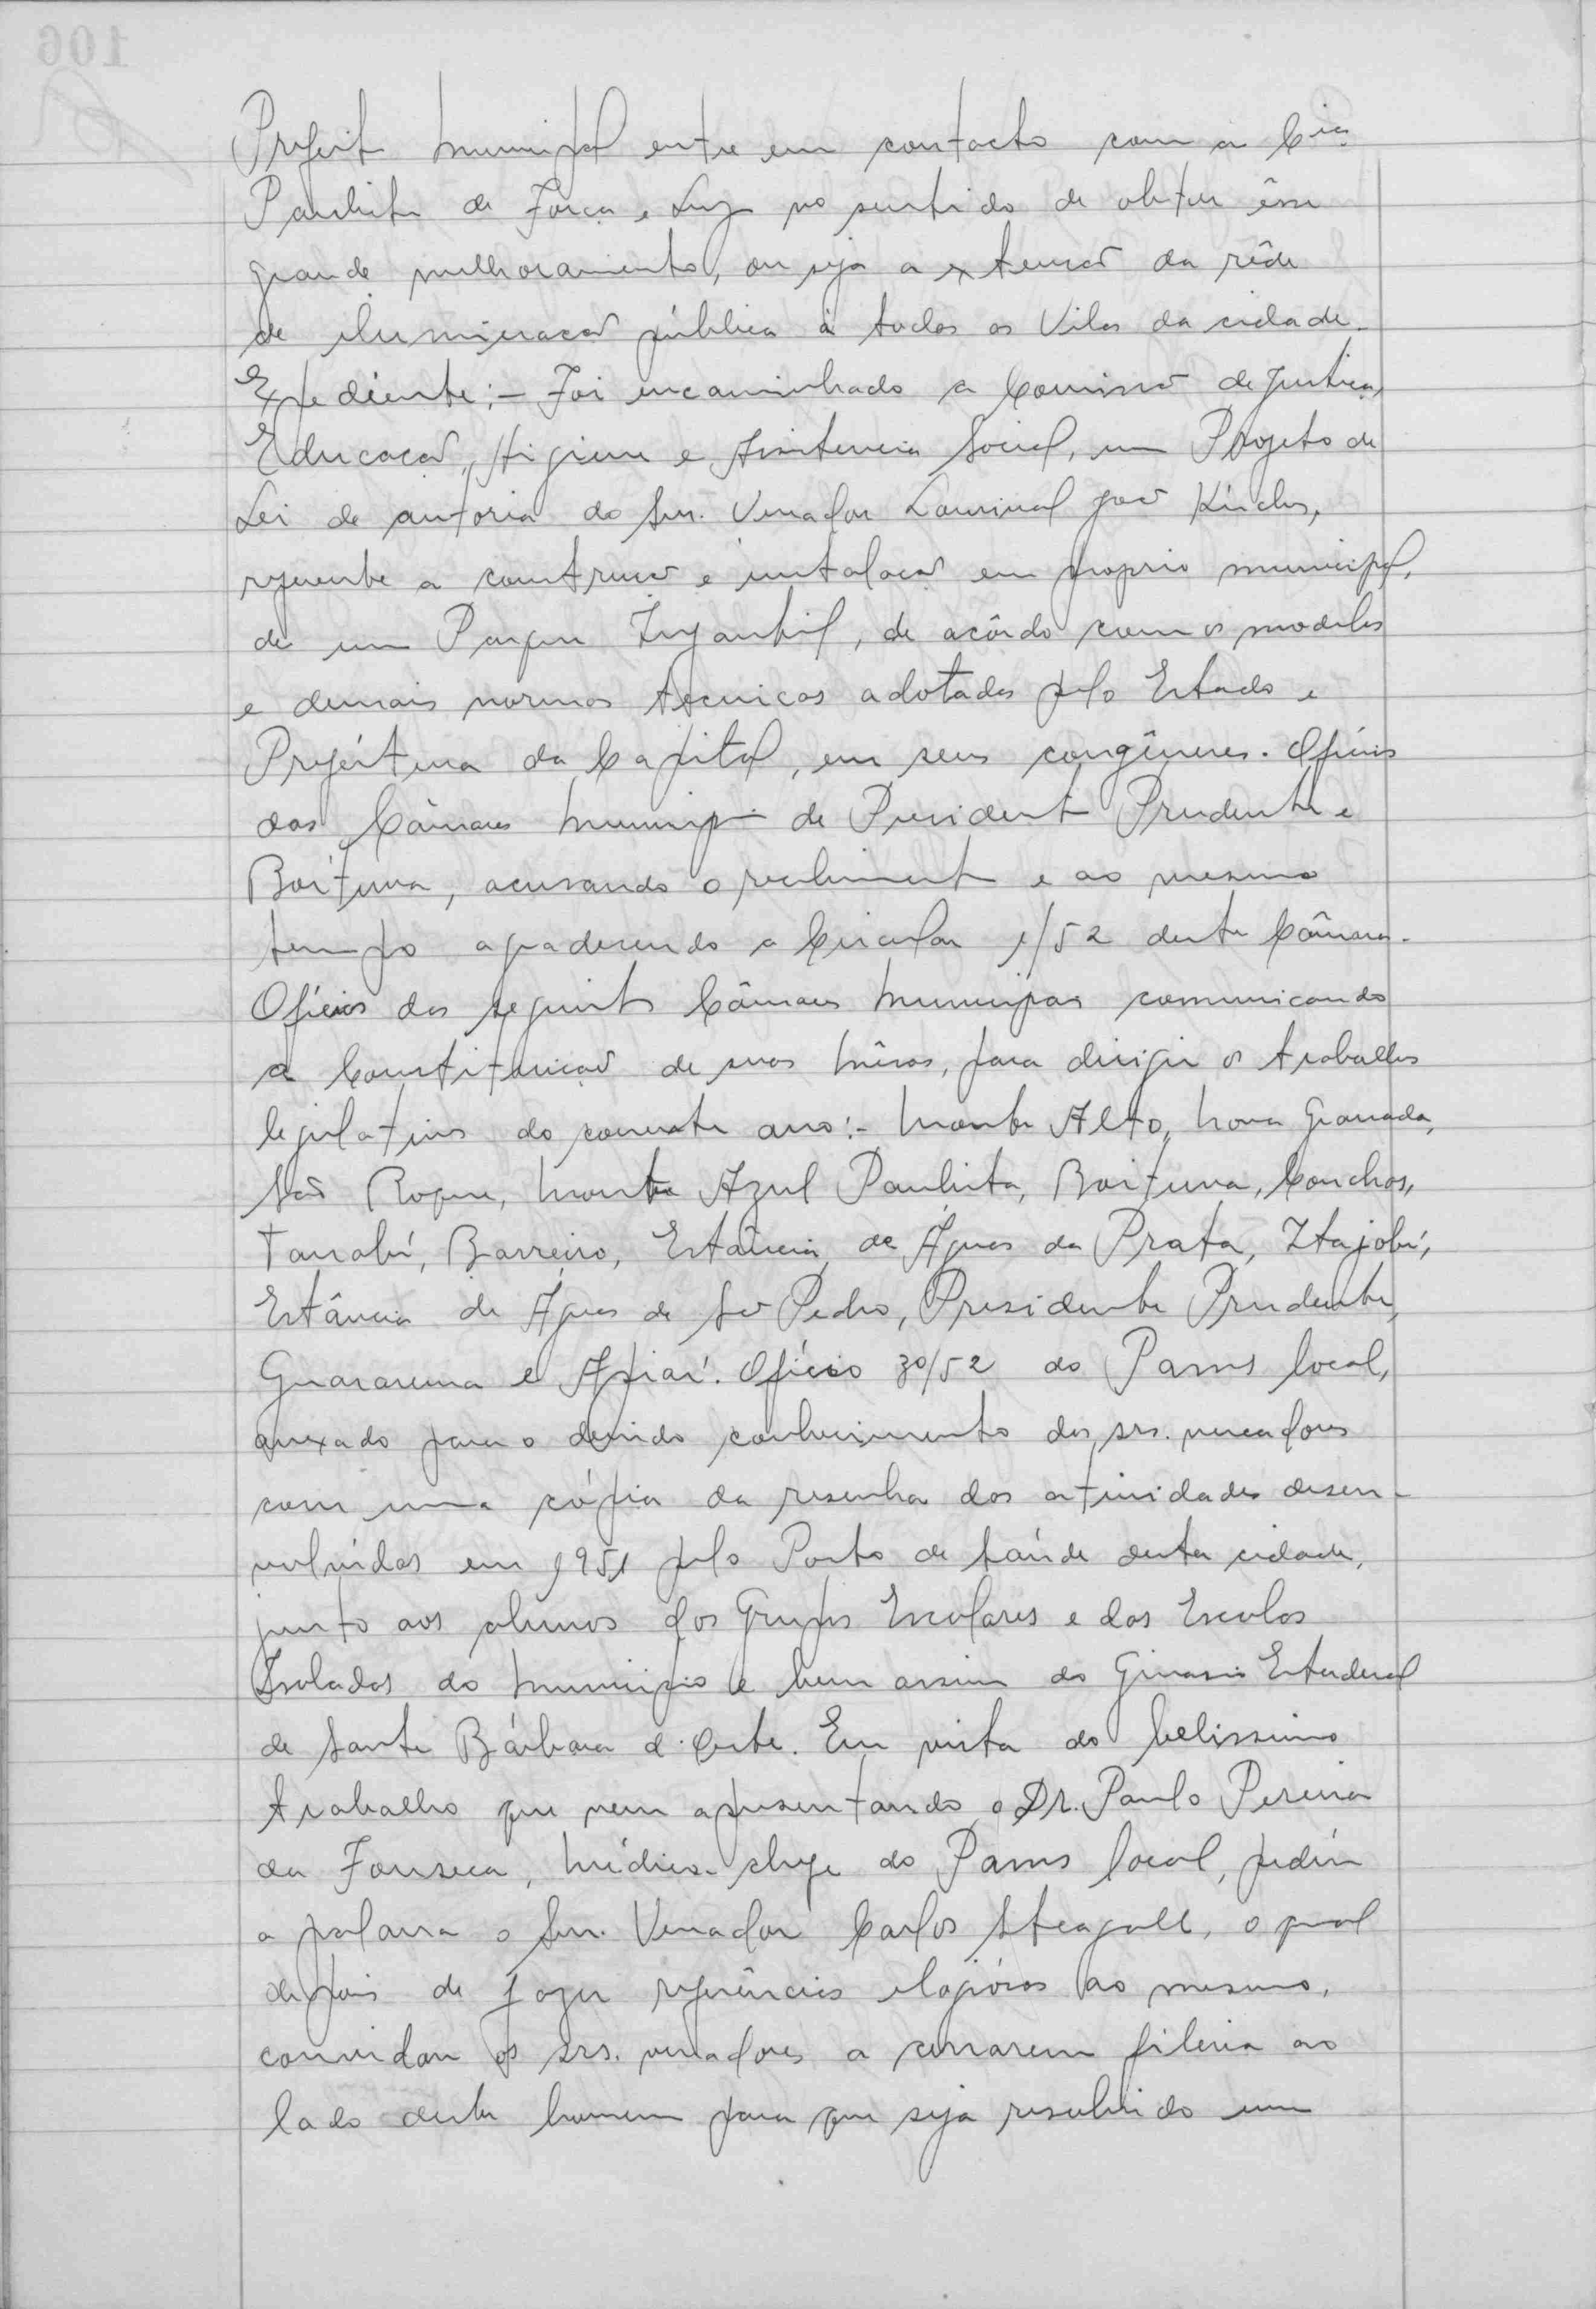 Prefeito Municipal entre em contacto com a Cia.
Paulista de Força e Luz no sentido de obter êsse
grande melhoramento, ou seja a extensão da rêde
de iluminação pública à todas as Vilas da cidade.
Expediente:- Foi encaminhado a Comissão de Justiça,
Educação, Higiene e Assistencia Social, um Projeto de
Lei de autoria do Snr. Vereador Lourival João
referente a construção e instalação em proprio municipal,
de um Parque Infantil, de acôrdo com os modelos
e demais normas técnicas adotadas pelo Estado e
Prefeitura da Capital, em seus congêneres. Ofícios
das Câmaras Municipais de Presidente Prudente e
Boituva, acusando o recebimento e ao mesmo
tempo agradecendo a Circular 1/52 desta Câmara.
Ofícios das seguintes Câmaras Municipais comunicando
a Constituição de suas Mêsas, para dirigir os trabalhos
legislativos do corrente ano:- Monte Alto, Nova Granada,
São Roque, Monte Azul Paulista, Boituva, Conchas,
Tanabí, Barreiro, Estância de Águas da Prata, Itajobí,
Estância de Águas de São Pedro, Presidente Prudente,
Guararema e Apiaí. Ofício 30/52 do Pams local,
anexado para o devido conhecimento dos srs. vereadores
com uma cópia da resenha das atividades desen-
volvidas em 1951 pelo Posto de Saúde desta cidade,
junto aos alunos dos Grupos Escolares e das Escolas
Isoladas do Municipio e bem assim do Ginasio Estadual
de Santa Bárbara d'Oeste. Em vista do belissimo
trabalho que vem apresentando o Dr. Paulo Pereira
da Fonseca, Médico-chefe do Pams local, pediu
a palavra o Snr. Vereador Carlos Steagall, o qual
depois de fazer referências elogiósas ao mesmo,
convidou os srs. vereadores a cerrarem fileira ao
lado deste homem para que seja resolvido um